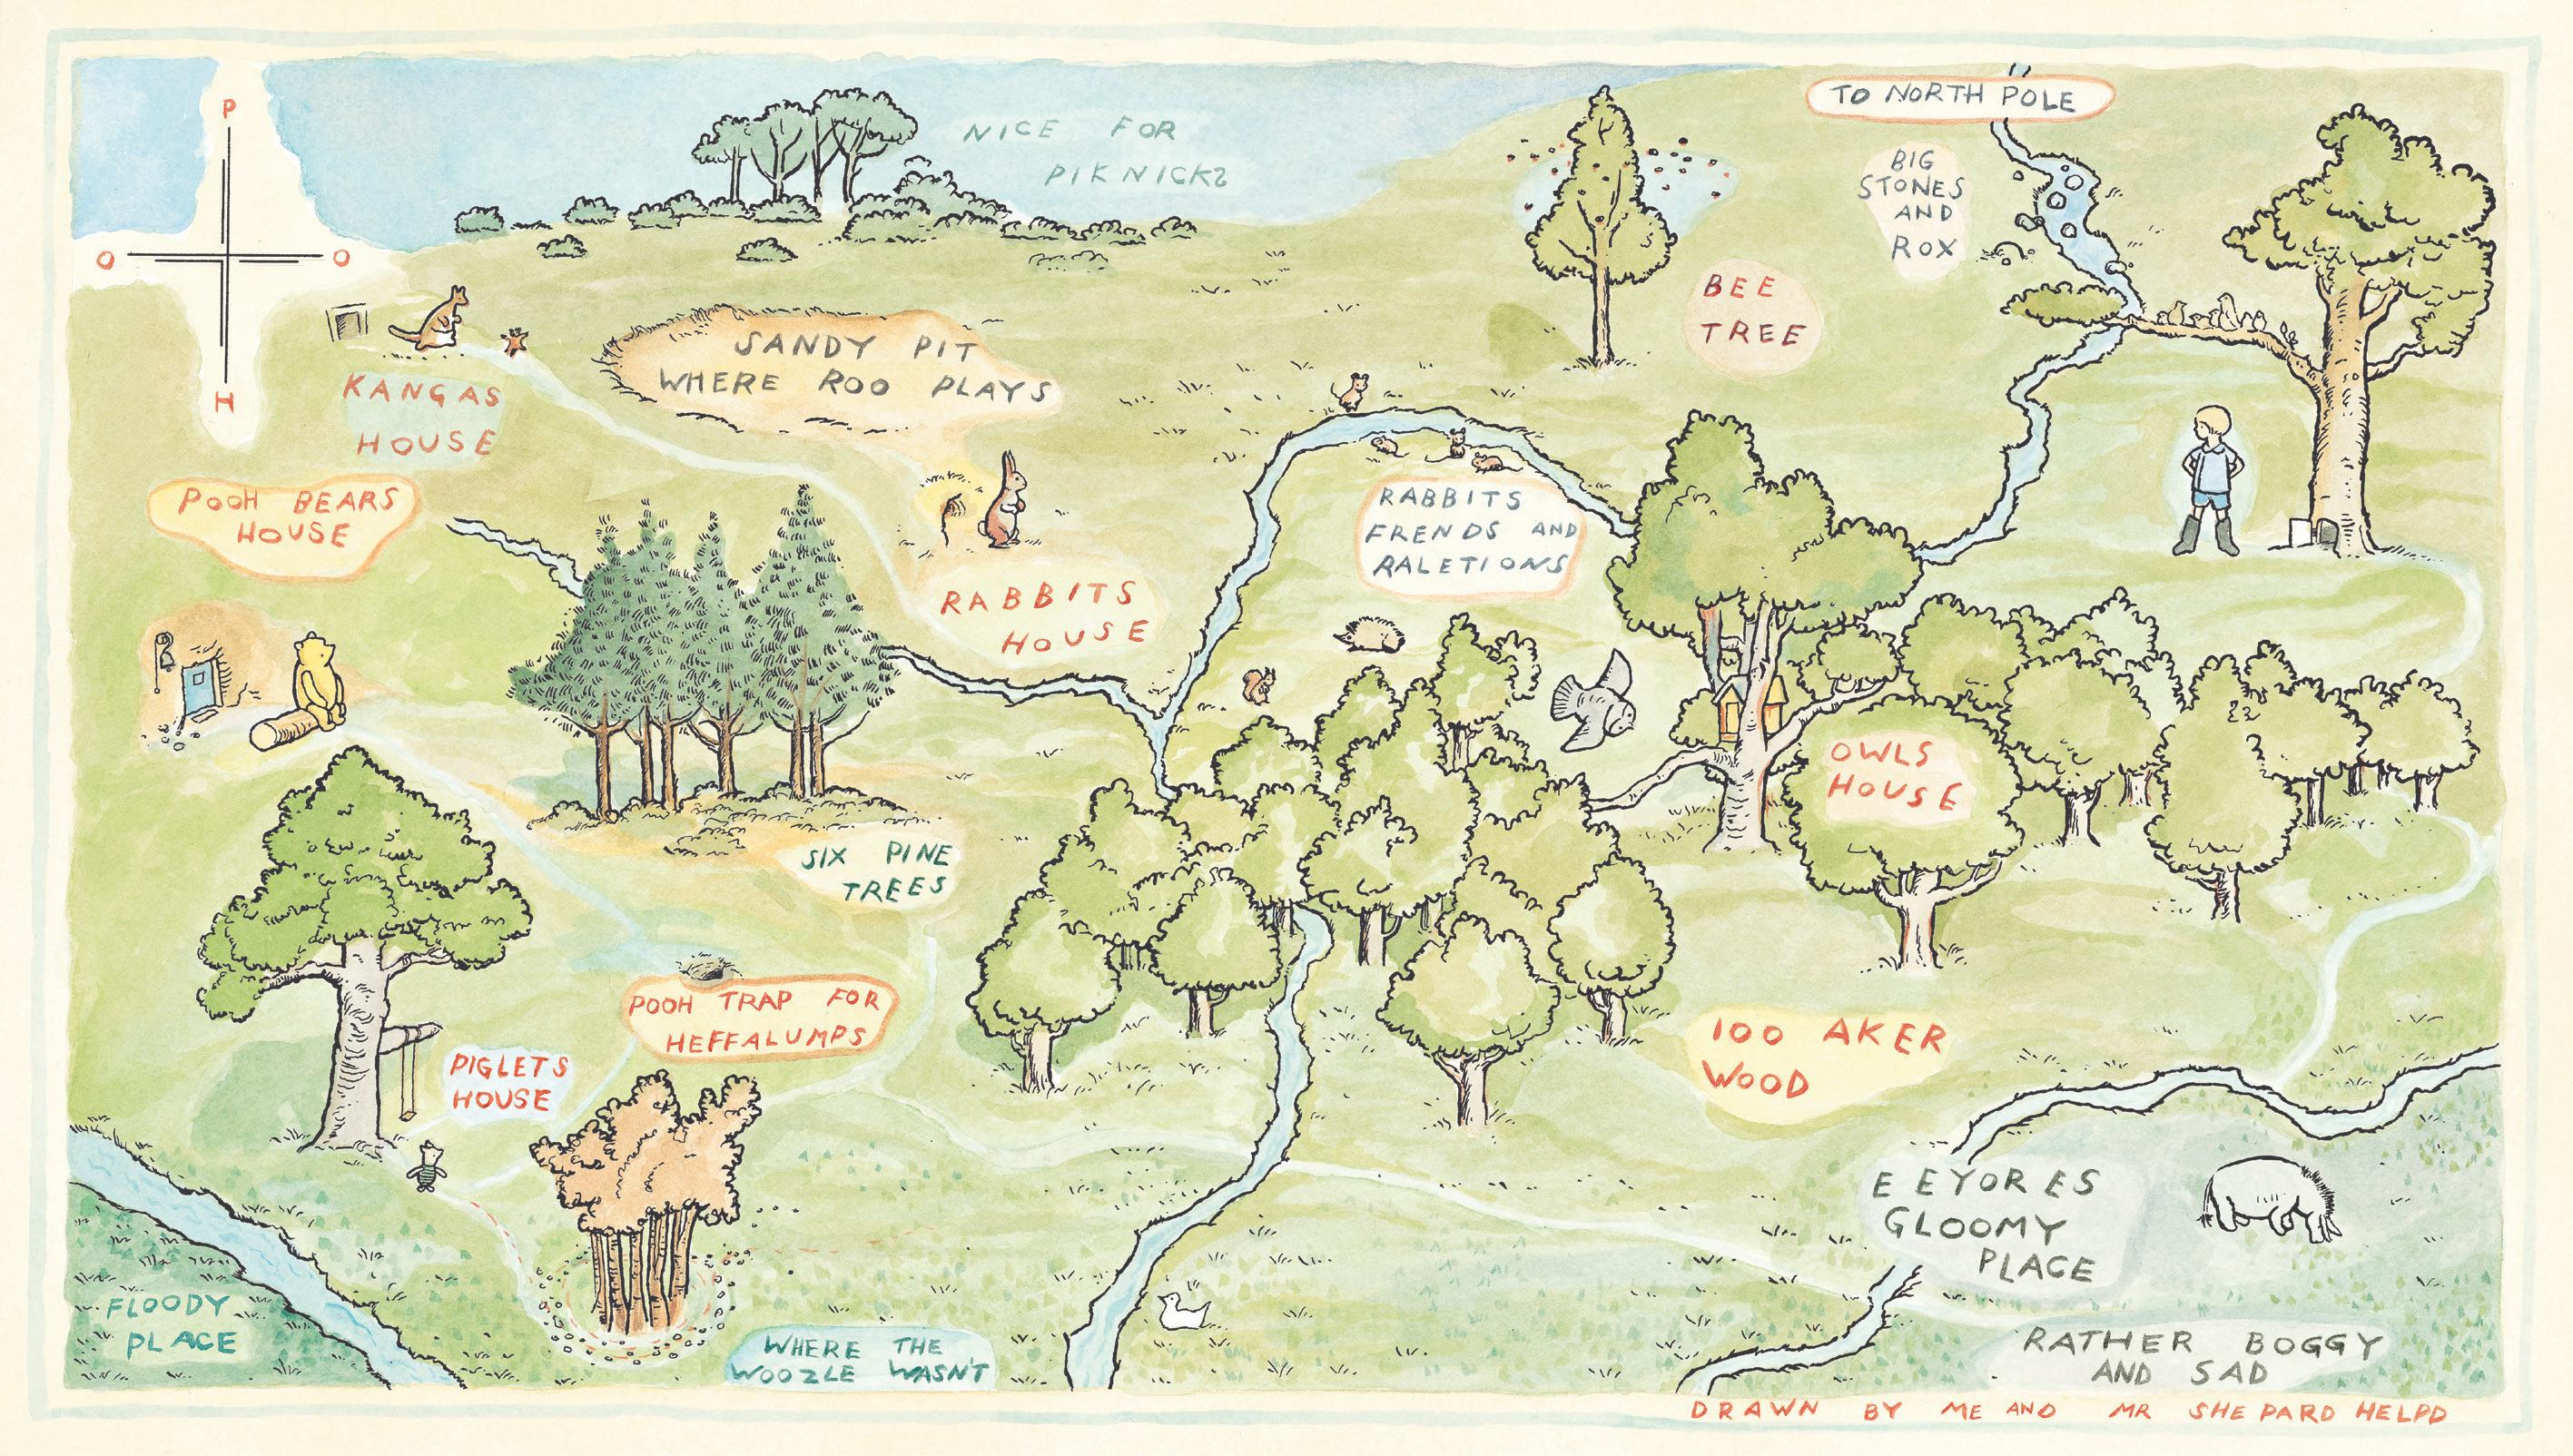 P
O
O
H
NICE FOR
PIKNICKS
TO NORTH POLE
BIG
STONES
AND
ROX
BEE
TREE
SANDY PIT
WHERE ROO PLAYS
KANGAS
HOUSE
POOH BEARS
HOUSE
RABBITS
HOUSE
RABBITS
FRENDS AND
RALETIONS
OWLS
HOUSE
SIX PINE
TREES
POOH TRAP FOR
HEFFALUMPS
PIGLETS
HOUSE
100 AKER
WOOD
EEYORES
GLOOMY
PLACE
FLOODY
PLACE
WHERE THE
WOOZLE WASN'T
RATHER BOGGY
AND SAD
DRAWN BY ME AND MR SHEPARD HELPD